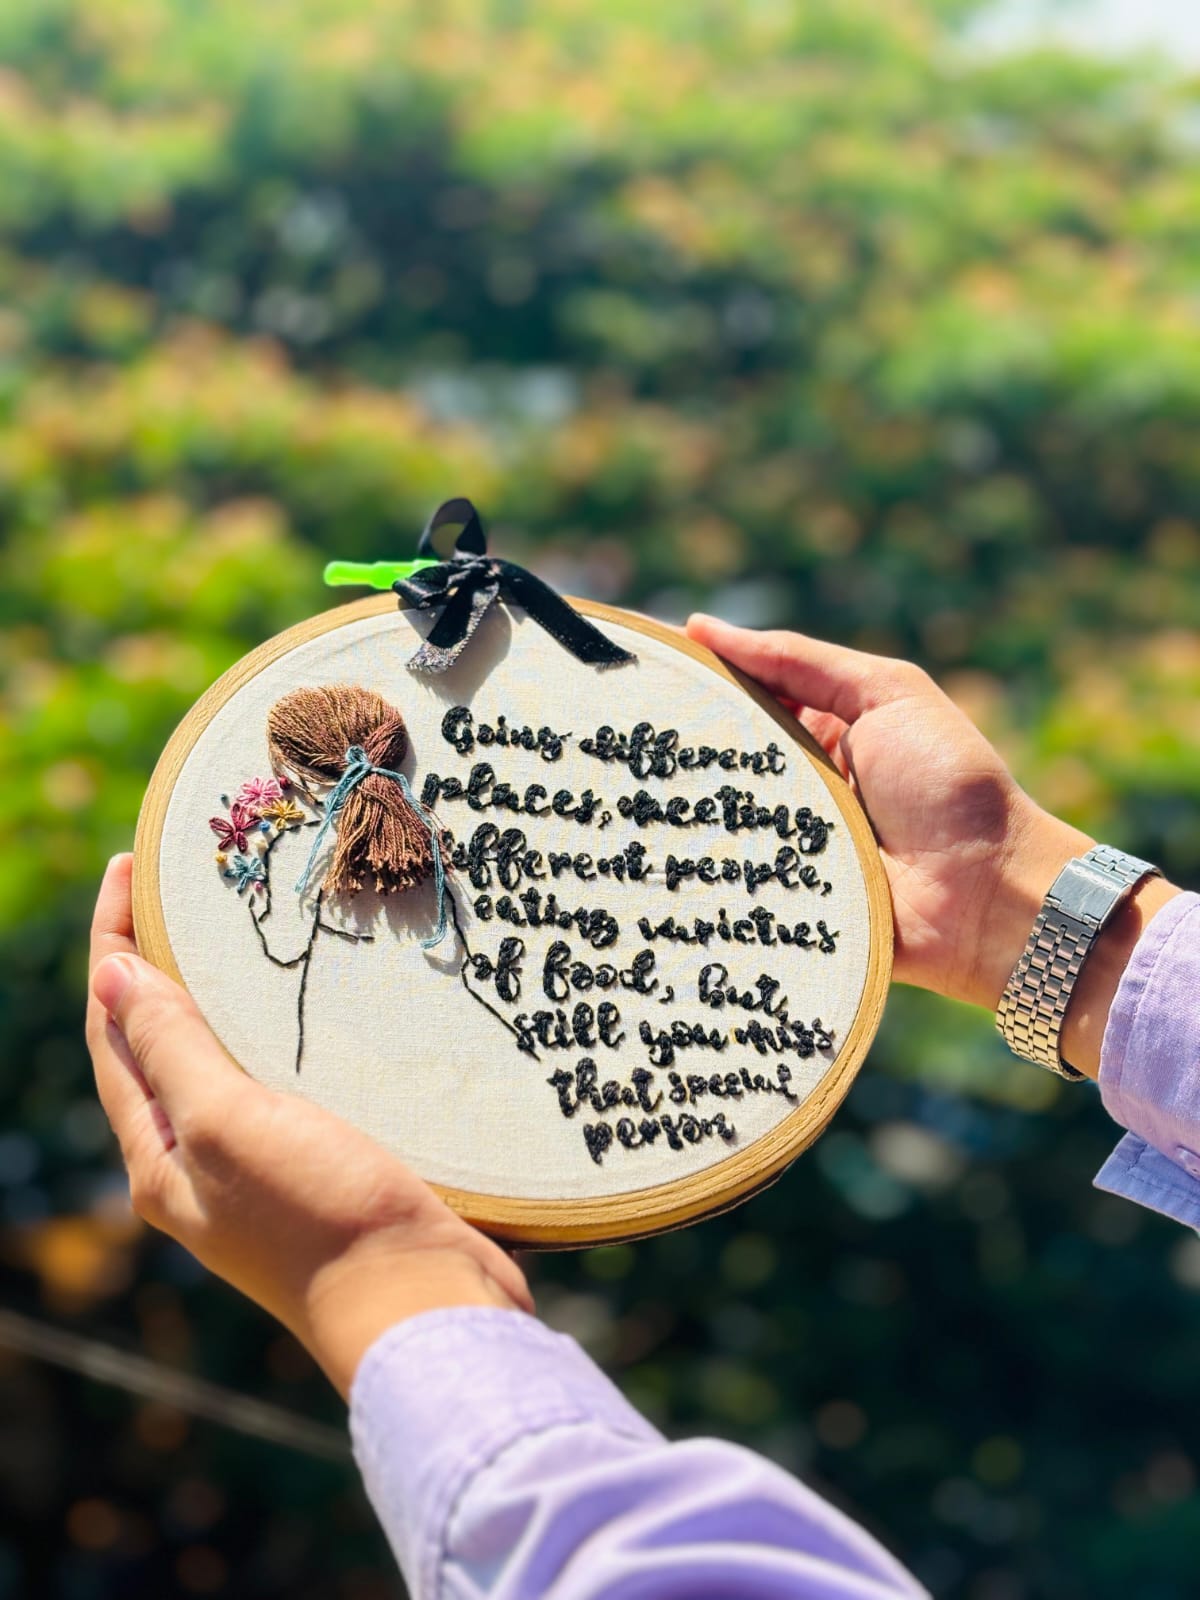 Going different
places, meeting
different people,
eating varieties
of food, but
still you miss
that special
person